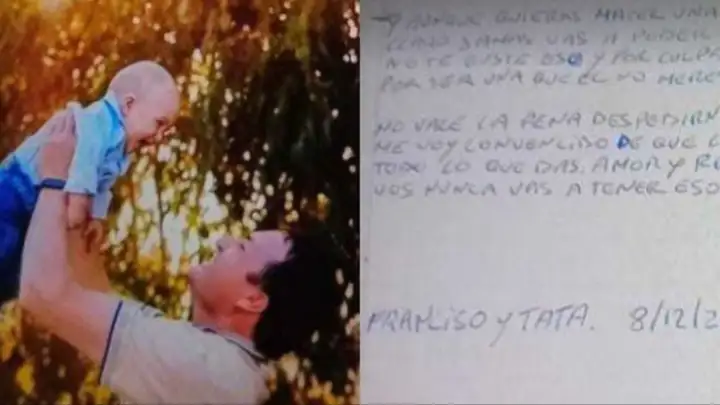 AUNQUE QUIERAS HACER UNA
VAS A PODER
A O TE GUSTE ESO Y POR CULPA
POR SER UNA QUE EL NO MERE
NO VALE LA PENA DESPEDIRM
ME VOY CONVENCIDO DE QUE
TODO LO QUE DAS, AMOR Y R
VOS NUNCA VAS A TENER ESO
FRANCISO Y TATA. 8/12/2